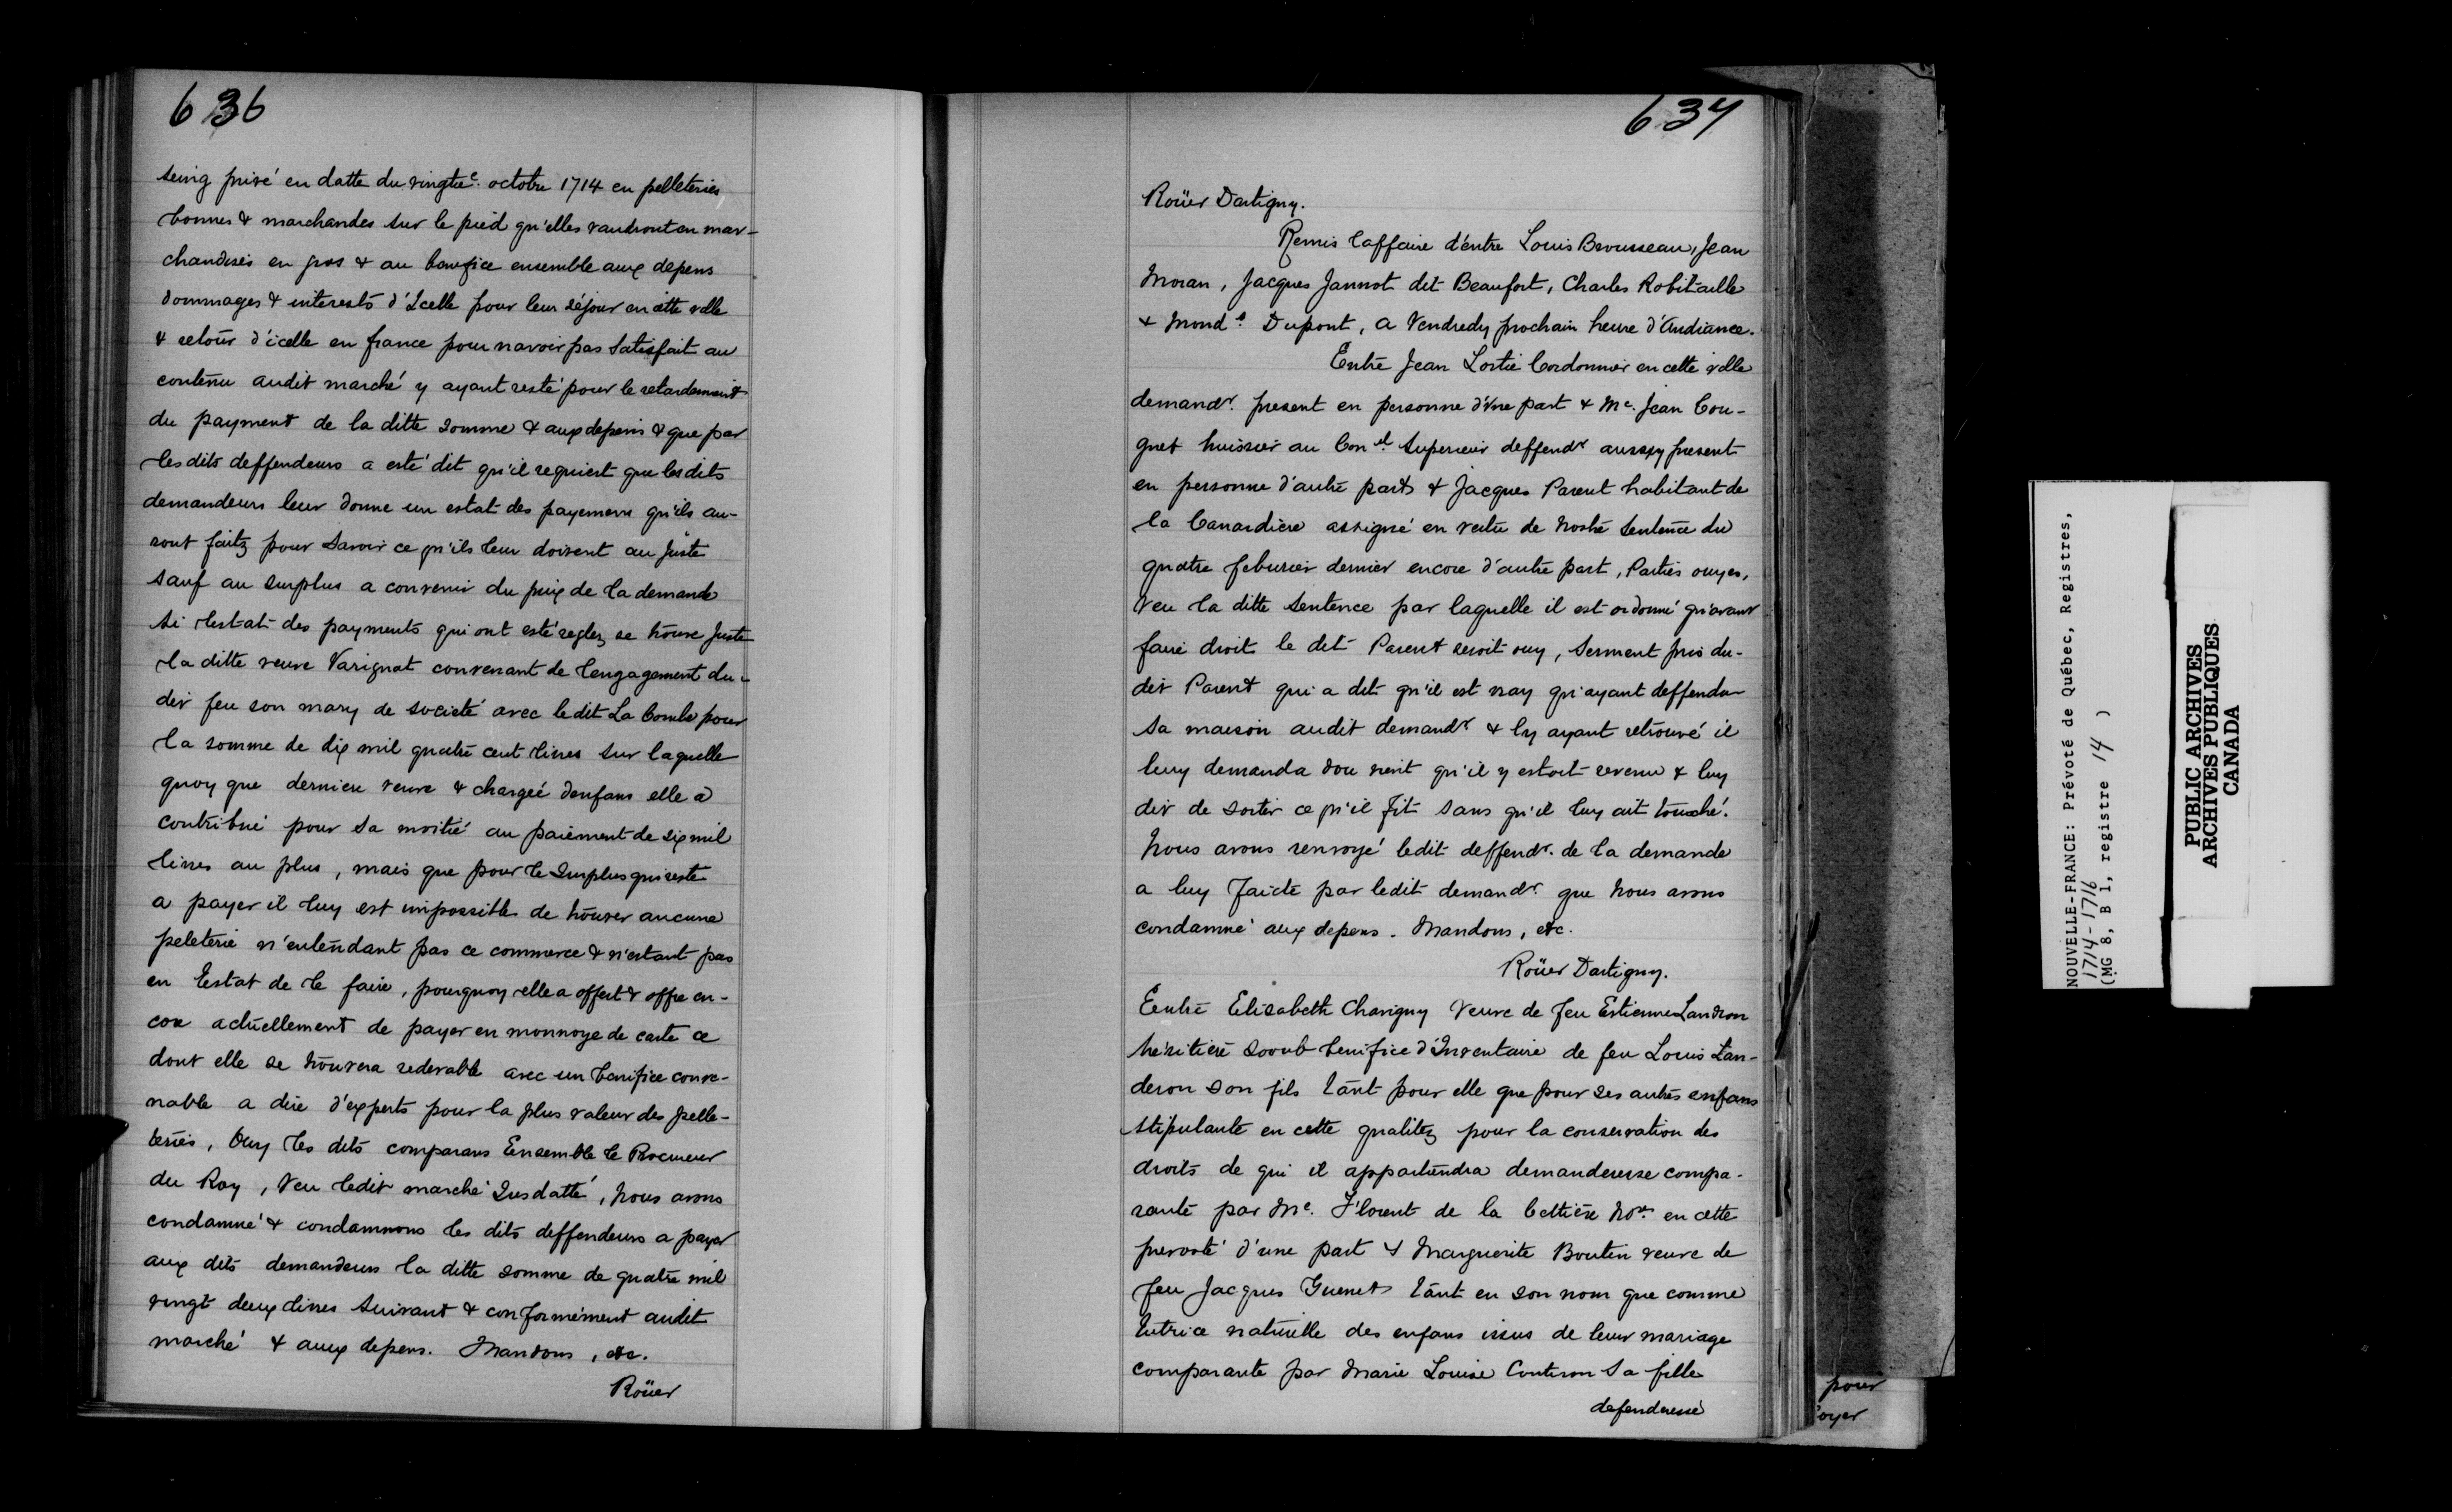 636
seing privé en datte du vingtie. octobre 1714 en pelleteries
bonnes & marchandes sur le pied qu'elles vaudront en mar-
chandises en gros & au benefice ensemble aux depens
dommages & interests d'Icelle pour leur séjour en cette ville
& retour d'icelle en france pour navoir pas satisfait au
contenu audit marché y ayant resté pour le retardement
du payment de la ditte somme & aux depens & que par
les dits deffendeurs a esté dit qu'il requiert que les dits
demandeurs leur donne un estat des payemens qu'ils au-
ront faitz pour savoir ce qu'ils leur doivent au Juste
sauf au surplus a convenir du prix de la demande
si l'estat des payments qui ont esté reglez se trouve Juste
la ditte veuve Varignat convenant de l'engagement du-
dit feu son mary de societé avec ledit La Combe pour
la somme de dix mil quatre cent livres sur laquelle
quoy que derniere veuve & chargeé denfans elle a
contribué pour sa moitié au paiement de six mil
livres au plus, mais que pour le surplus qui reste
a payer il luy est impossible de trouver aucune
peleterie n'entendant pas ce commerce & n'estant pas
en Estat de le faire, pourquoy elle a offert & offre en-
core actuellement de payer en monnoye de carte ce
dont elle se trouvera redevable avec un benifice conve-
nable a dire d'experts pour la plus valeur des pelle-
teries, Ouy les dits comparans Ensemble le Procureur
du Roy, Veu ledit marché Susdatté, Nous avons
condamné & condamnons les dits deffendeurs a payer
aux dits demandeurs la ditte somme de quatre mil
vingt deux livres suivant & conformément audit
marché & aux depens. Mandons, etc.
Roüer
637
Roüer Dartigny.
Remis l'affaire d'entre Louis Brousseau, Jean
Moran, Jacques Jannot dit Beaufort, Charles Robitaille
& Mond.e Dupont, a Vendredy prochain heure d'Audiance.
Entre Jean Lortie Cordonnier en cette ville
demandr. present en personne d'Une part & Me. Jean Cou-
gnet huissier au Conel. Superieur deffendr aussy present
en personne d'autre part & Jacques Parent habitant de
la Canardiere assigné en vertu de Nostre Sentence du
quatre feburier dernier encore d'autre part, Parties ouyes,
Veu la ditte Sentence par laquelle il est ordonné qu'avant
faire droit le dit Parent seroit ouy, Serment pris du-
dit Parent qui a dit qu'il est vray qu'ayant deffendu
sa maison audit demandr & ly ayant retrouvé il
luy demanda dou vient qu'il y estoit revenu & luy
dit de sortir ce qu'il fit sans qu'il luy ait touché.
Nous avons renvoyé ledit deffendr. de la demande
a luy faicte par ledit demandr. que Nous avons
condamné aux depens. Mandons, etc.
Roüer Dartigny.
Entre Elisabeth Chavigny Veuve de feu Estienne Landron
héritiere sooub benifice d'Inventaire de feu Louis Lan-
deron son fils tant pour elle que pour ses autres enfans
stipulante en cette qualitez pour la conservation des
droits de qui il appartiendra demanderesse compa-
rante par Me. Florent de la Cettiere Nore. en cette
prevosté d'une part & Marguerite Boutin veuve de
feu Jacques Guenet tant en son nom que comme
tutrice naturelle des enfans issus de leur mariage
comparante par Marie Louise sa fille
defenderesse
pour
oyer
NOUVELLE-FRANCE: Prévoté de Québec, Registres,
1714-1716
(MG 8, B 1, registre 14 )
PUBLIC ARCHIVES
ARCHIVES PUBLIQUES
CANADA